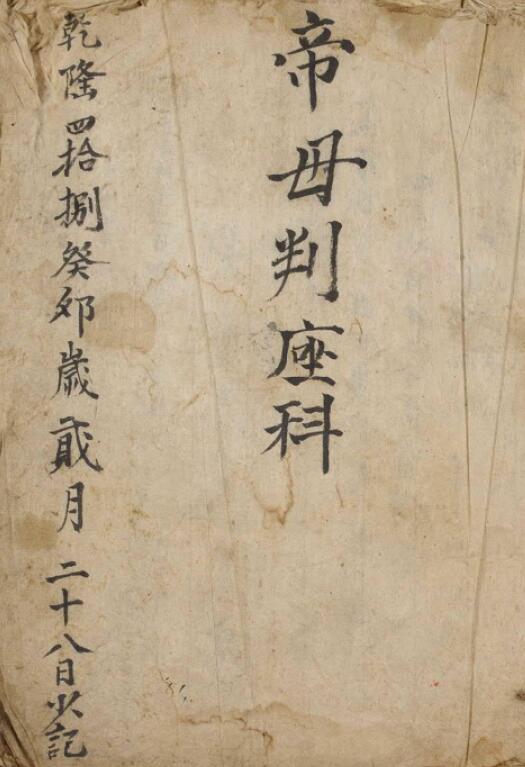 帝母判座科
乾隆四拾捌癸夘歲貮月二十八日火記